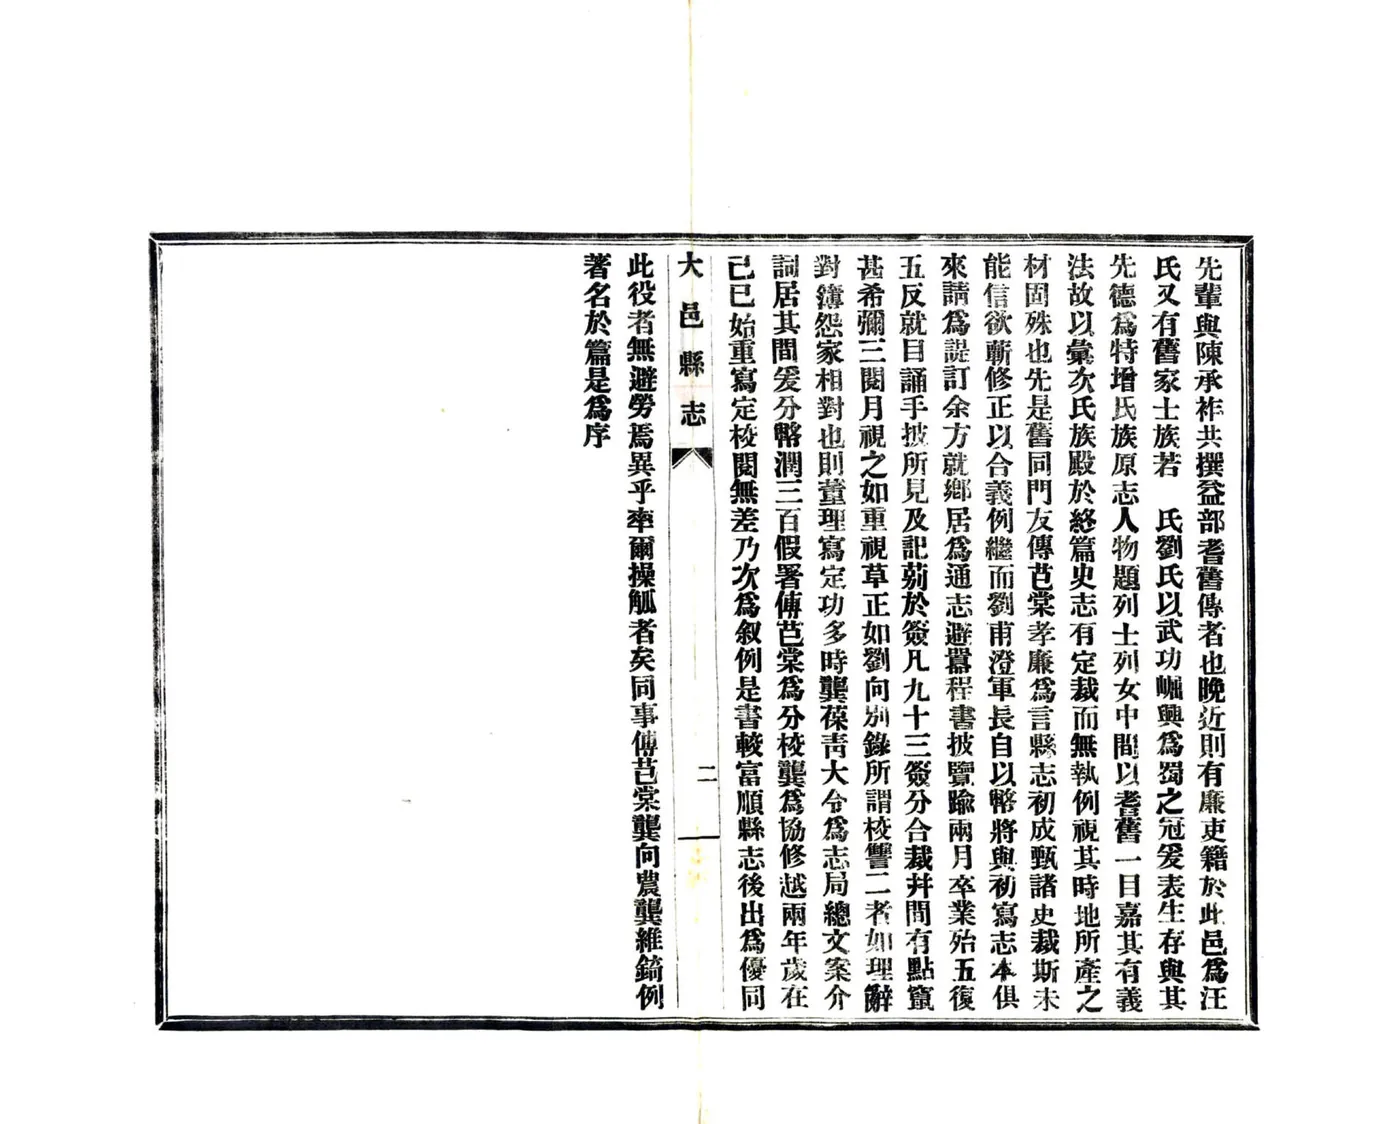 先輩與陳承祚共撰益部耆舊傳者也晚近則有廉吏籍於此邑爲汪
氏又有舊家士族若　氏劉氏以武功崛興爲蜀之冠爰表生存與其
先德爲特增氏族原志人物題列士列女中間以耆舊一目嘉其有義
法故以彙次氏族殿於終篇史志有定裁而無執例視其時地所產之
材固殊也先是舊同門友傅芑棠孝廉爲言縣志初成甄諸史裁斯未
能信欲蘄修正以合義例繼而劉甫澄軍長自以幣將與初寫志本俱
來請爲諟訂余方就鄉居爲通志避囂程書披覽踰兩月卒業殆五復
五反就目誦手披所見及記莂於簽凡九十三簽分合裁幷間有點竄
甚希彌三閱月視之如重視草正如劉向別錄所謂校讐二者如理辭
對簿怨家相對也則董理寫定功多時龔葆靑大令爲志局總文案介
詞居其間爰分幣潤三百假署傅芑棠爲分校龔爲協修越兩年歲在
己巳始重寫定校閱無差乃次爲叙例是書較富順縣志後出爲優同
大邑縣志
二
此役者無避勞焉異乎率爾操觚者矣同事傅芑棠龔向農龔維錡例
著名於篇是爲序